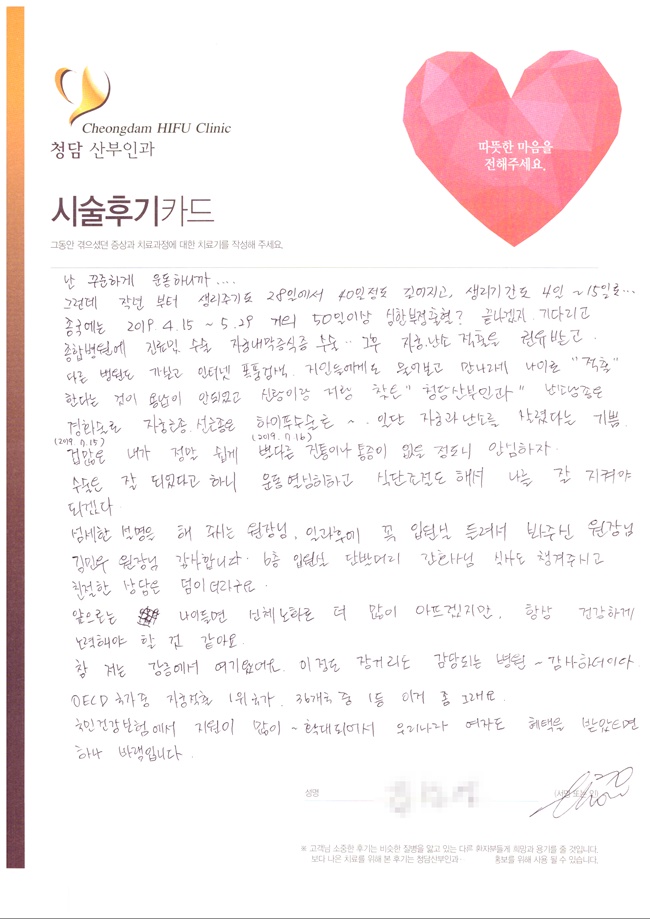 Cheongdam HIFU Clinic
청담 산부인과
따뜻한 마음을
전해주세요.
시술후기카드
그동안 겪으셨던 증상과 치료과정에 대한 치료기를 작성해 주세요.
난 꾸준하게 운동하니까....
그런데 작년 부터 생리주기도 28일에서 40일정도 길어지고, 생리기간도 4일~15일로...
종국에는 2019. 4.15 ~ 5.29 거의 50일이상 심한부정출혈? 끝나겠지 기다리고
종합병원에 진료및 수술 자궁내막증식증 수술.. 그후 자궁.난소 적출을 권유받고.
다른 병원도 가보고 인터넷 폭풍검색. 지인들에게도 물어보고 만나과에 나이로 "적출"
한다는 것이 용납이 안되었고 신랑이랑 저랑 찾은 "청담산부인과" 난소낭종은
경화술로 자궁근종.선근종은 하이푸수술로 ~. 일단 자궁과 난소를 살렸다는 기쁨.
(2019.7.15) (2019.7.16)
겁많은 내가 정말 쉽게 별다른 진통이나 통증이 없을 정도니 안심하자.
수술은 잘 되었다고 하니 운동 열심히하고 식단조절도 해서 나를 잘 지켜야
되겠다
섬세한 설명을 해 주시는 원장님, 일과후에 꼭 입원실 들려서 봐주신 원장님
김민우 원장님 감사합니다. 6층 입원실 단발머리 간호사님 식사도 챙겨주시고
친절한 상담은 덤이더라구요.
앞으로는 나이들면 신체노화로 더 많이 아프겠지만, 항상 건강하게
노력해야 할 것 같아요.
참 저는 강릉에서 여기왔어요. 이정도 장거리도 감당되는 병원~감사하더이다.
OECD 국가중 자궁적출 1위국가. 36개국 중 1등 이거 좀 그래요.
국민건강보험에서 지원이 많이~확대되어서 우리나라 여자도 혜택을 받았으면
하나 바램입니다.
성명
(서명 또는 인)
※ 고객님 소중한 후기는 비슷한 질병을 앓고 있는 다른 환자분들께 희망과 용기를 줄 것입니다.
보다 나은 치료를 위해 본 후기는 청담산부인과 홍보를 위해 사용 될 수 있습니다.